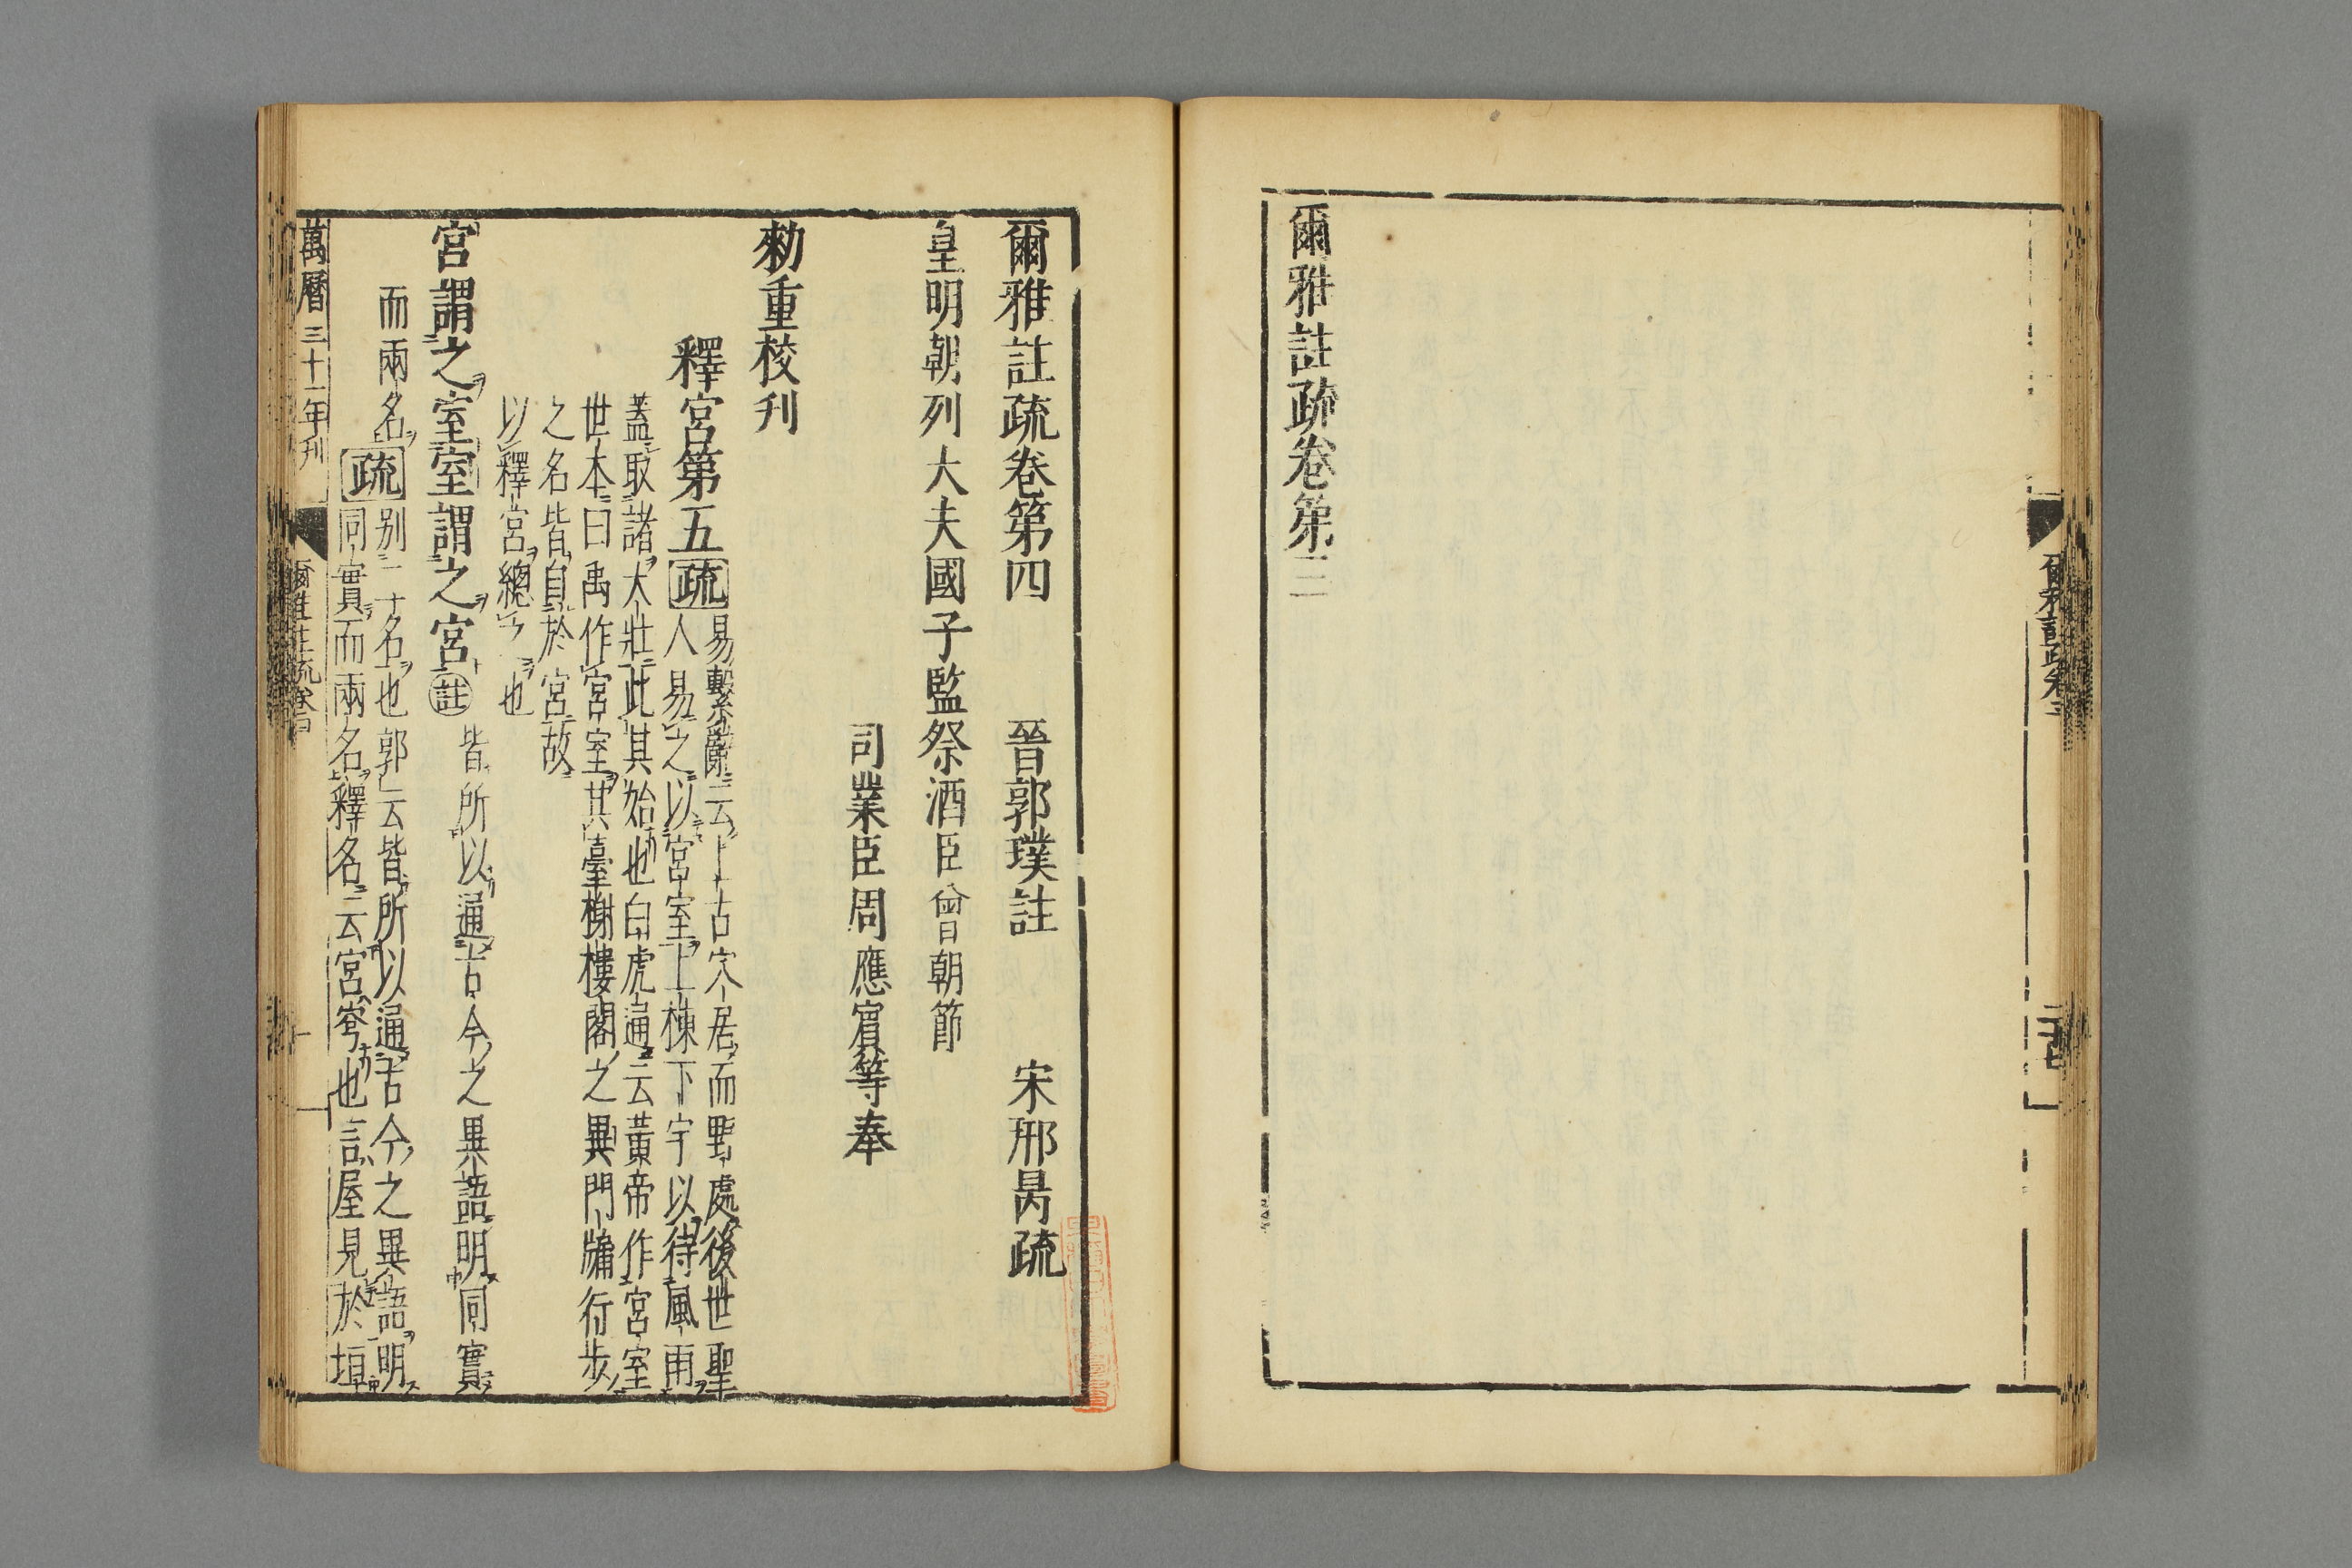 爾雅註疏卷第三
爾雅註疏卷三
二十七
爾雅註疏卷第四　晉郭璞註　宋邢昺疏
皇明朝列大夫國子監祭酒臣曾朝節
司業臣周應賔等奉
勑重校刊
釋宮第五疏易繫辭云上古穴居而野處後世聖
人易之以宮室上棟下宇以待風雨
蓋取諸大壯此其始也白虎通云黃帝作宮室
世本曰禹作宮室其臺榭樓閣之異門牖行步
之名皆自於宮故
以釋宮總之也
宮謂之室室謂之宮註皆所以通古今之異語明同實
而兩名疏別二名也郭云皆所以通古今之異語明
同實而兩名釋名云宮穹也言屋見於垣
萬曆三十一年刊
爾雅註疏卷四
一